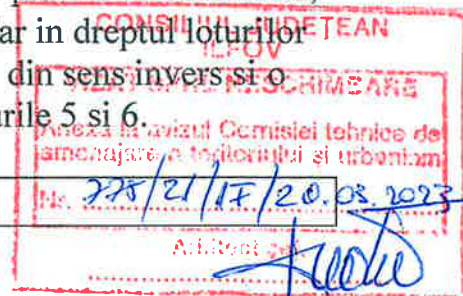 ar in dreptul loturilor
din sens invers si o
urile 5 si 6.
CONSILIUL JUDETEAN
ILFOV
SPRE NESCHIMBARE
Anexa la avizul Comisiei tehnice de
amenajare a teritoriului si urbanism
Nr. 775/21/17/20.03.2023
Arhitect